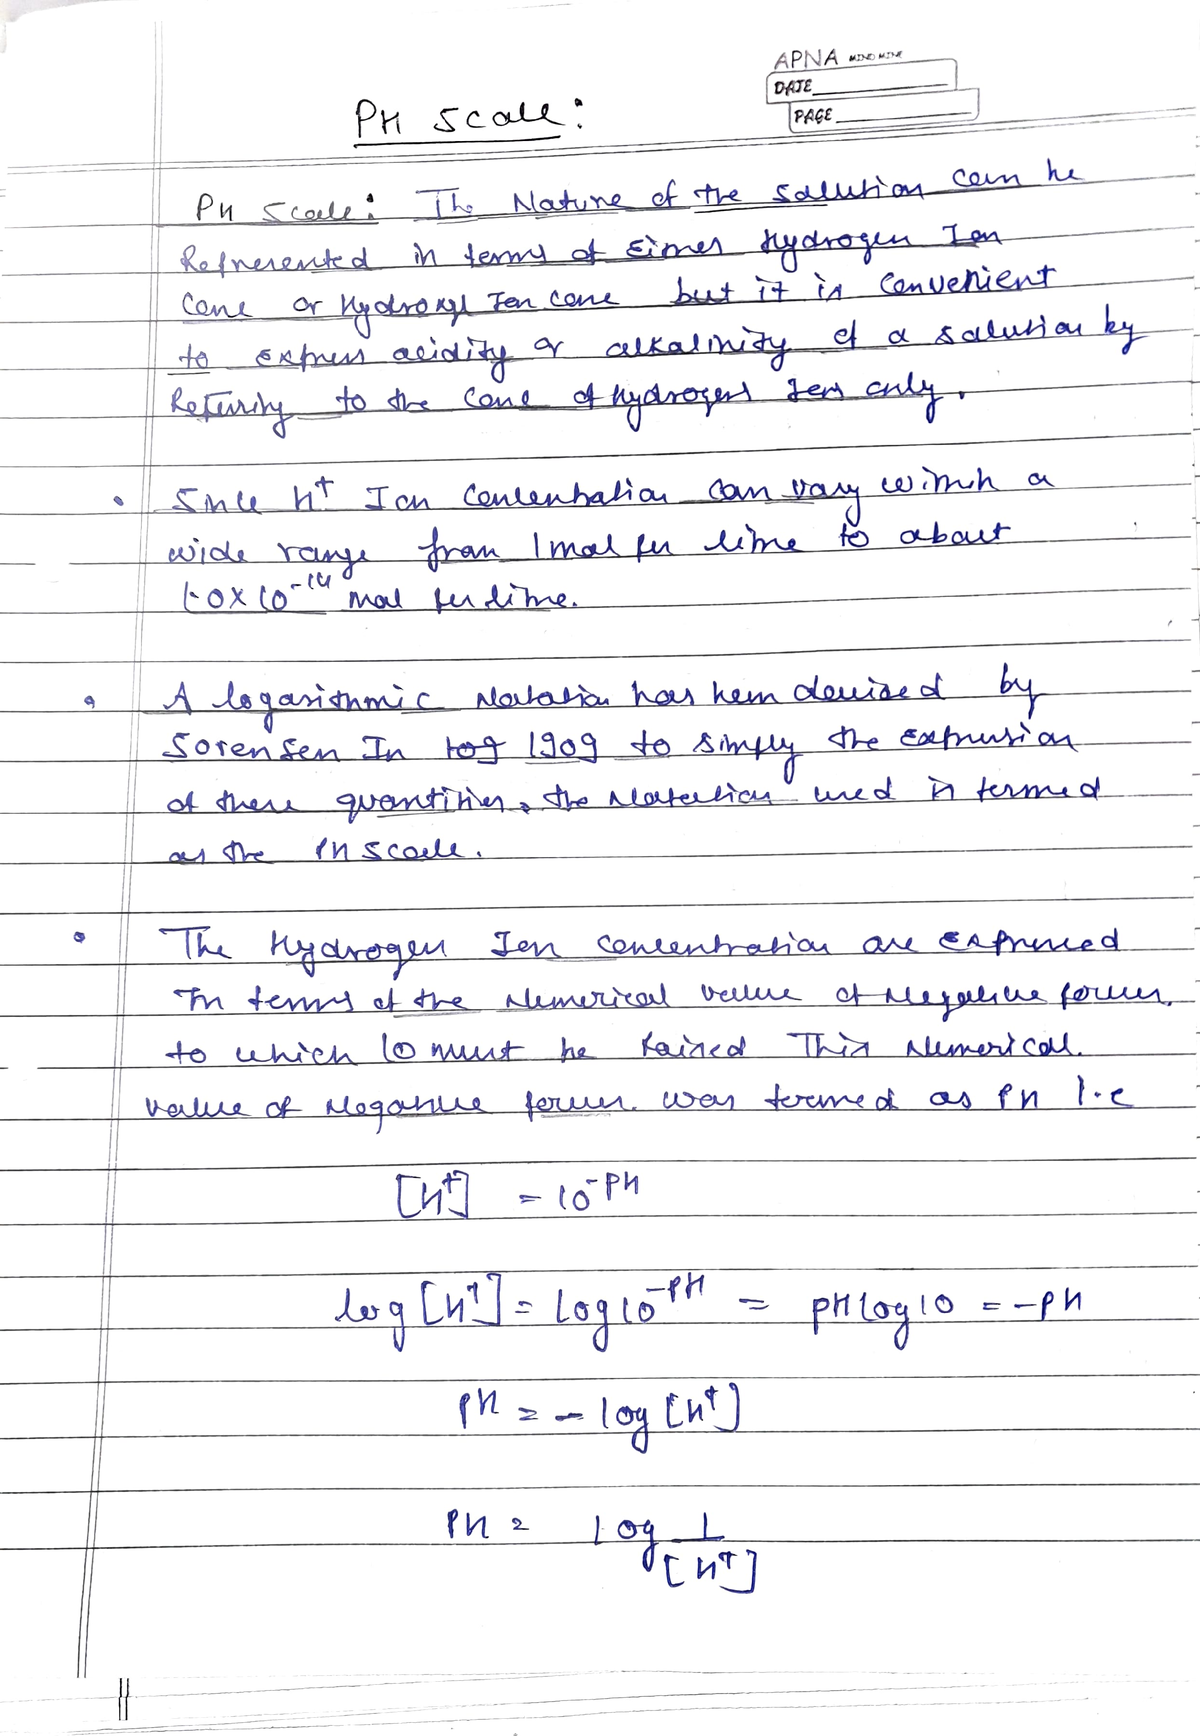 APNA MIND MINE
DATE
PAGE
PH Scale:
PH Scale: The Nature of the solution can be
Represented in terms of Eimer Hydrogen Ion
Conc or Hydroxyl Ion conc but it is Convenient
to express acidity or alkalinity of a solution by
Referring to the Conc of Hydrogens Ions only.
• Since H+ Ion Concentration can vary within a
wide range from 1 mol per litre to about
1.0 x 10^-14 mol per litre.
• A logarithmic Notation has been devised by
Sorensen In 1909 to simply the expression
of these quantities, the Notation used is termed
as the PH scale.
• The Hydrogen Ion concentration are expressed
In terms of the Numerical value of Negative power
to which 10 must be raised This Numerical
value of Negative power was termed as PH I.e
[H+] = 10^-PH
log [H+] = log 10^-PH = pH log 10 = -PH
PH = - log [H+]
PH = log 1/[H+]